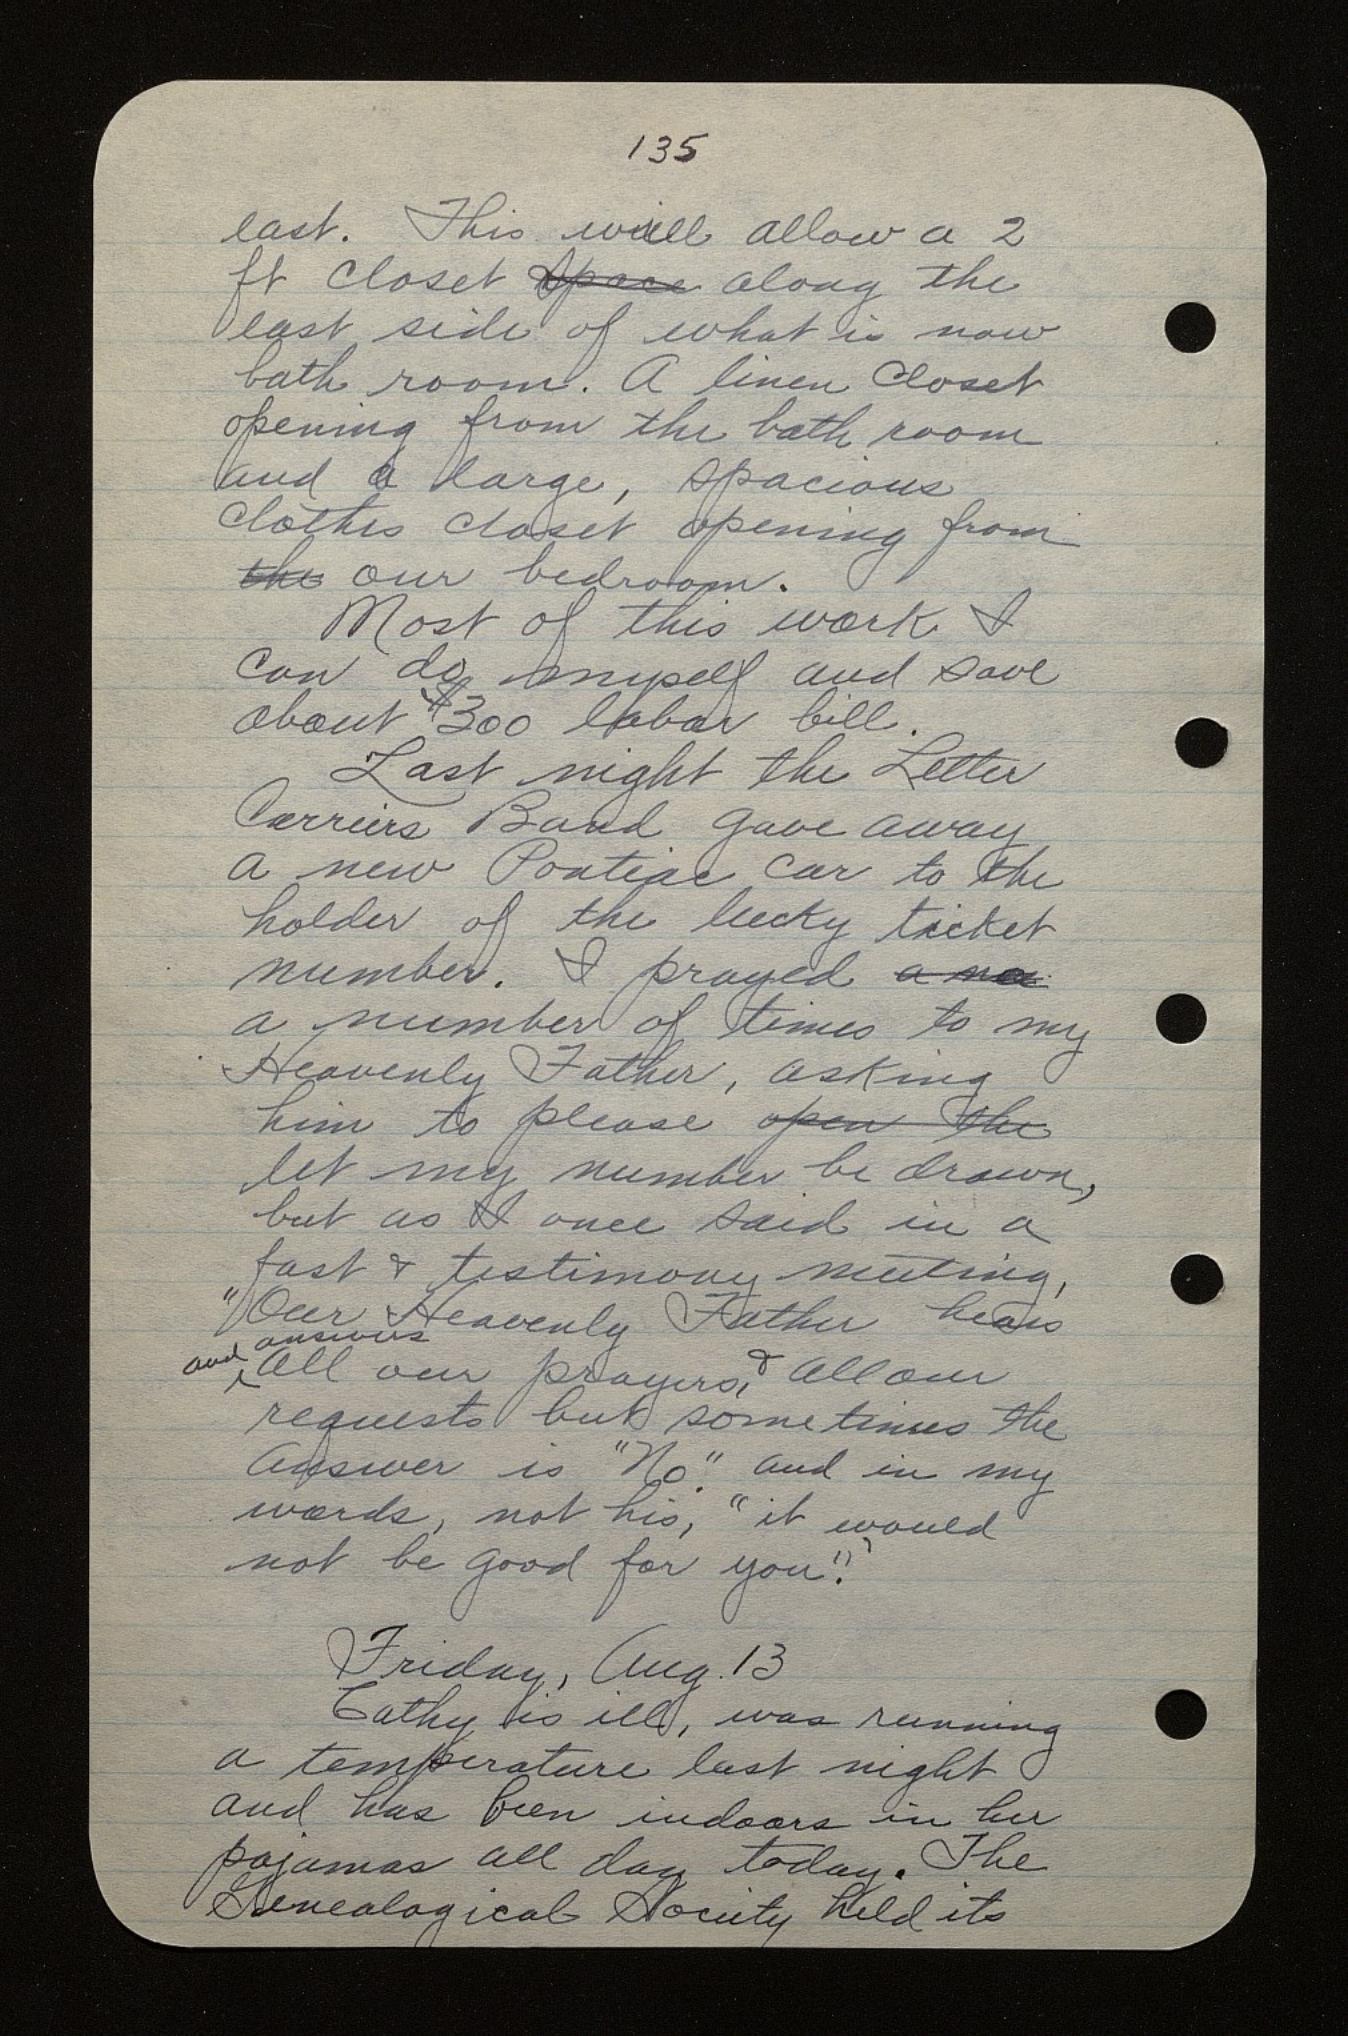 135
east. This will allow a 2
ft closet space along the
east side of what is now
bath room. A linen closet
opening from the bath room
and a large, spacious
clothes closet opening from
the our bedroom.
Most of this work I
can do myself and save
about $300 labor bill.
Last night the Letter
Carriers Band gave away
a new Pontiac car to the
holder of the lucky ticket
number. I prayed a
a number of times to my
Heavenly Father, asking
him to please open the
let my number be drawn,
but as I once said in a
fast & testimony meeting,
"Our Heavenly Father hears
and answers
all our prayers, & all our
requests but sometimes the
answer is "No." and in my
words, not his, "it would
not be good for you".'
Friday, Aug. 13
Cathy is ill, was running
a temperature last night
and has been indoors in her
pajamas all day today. The
Genealogical Society held its